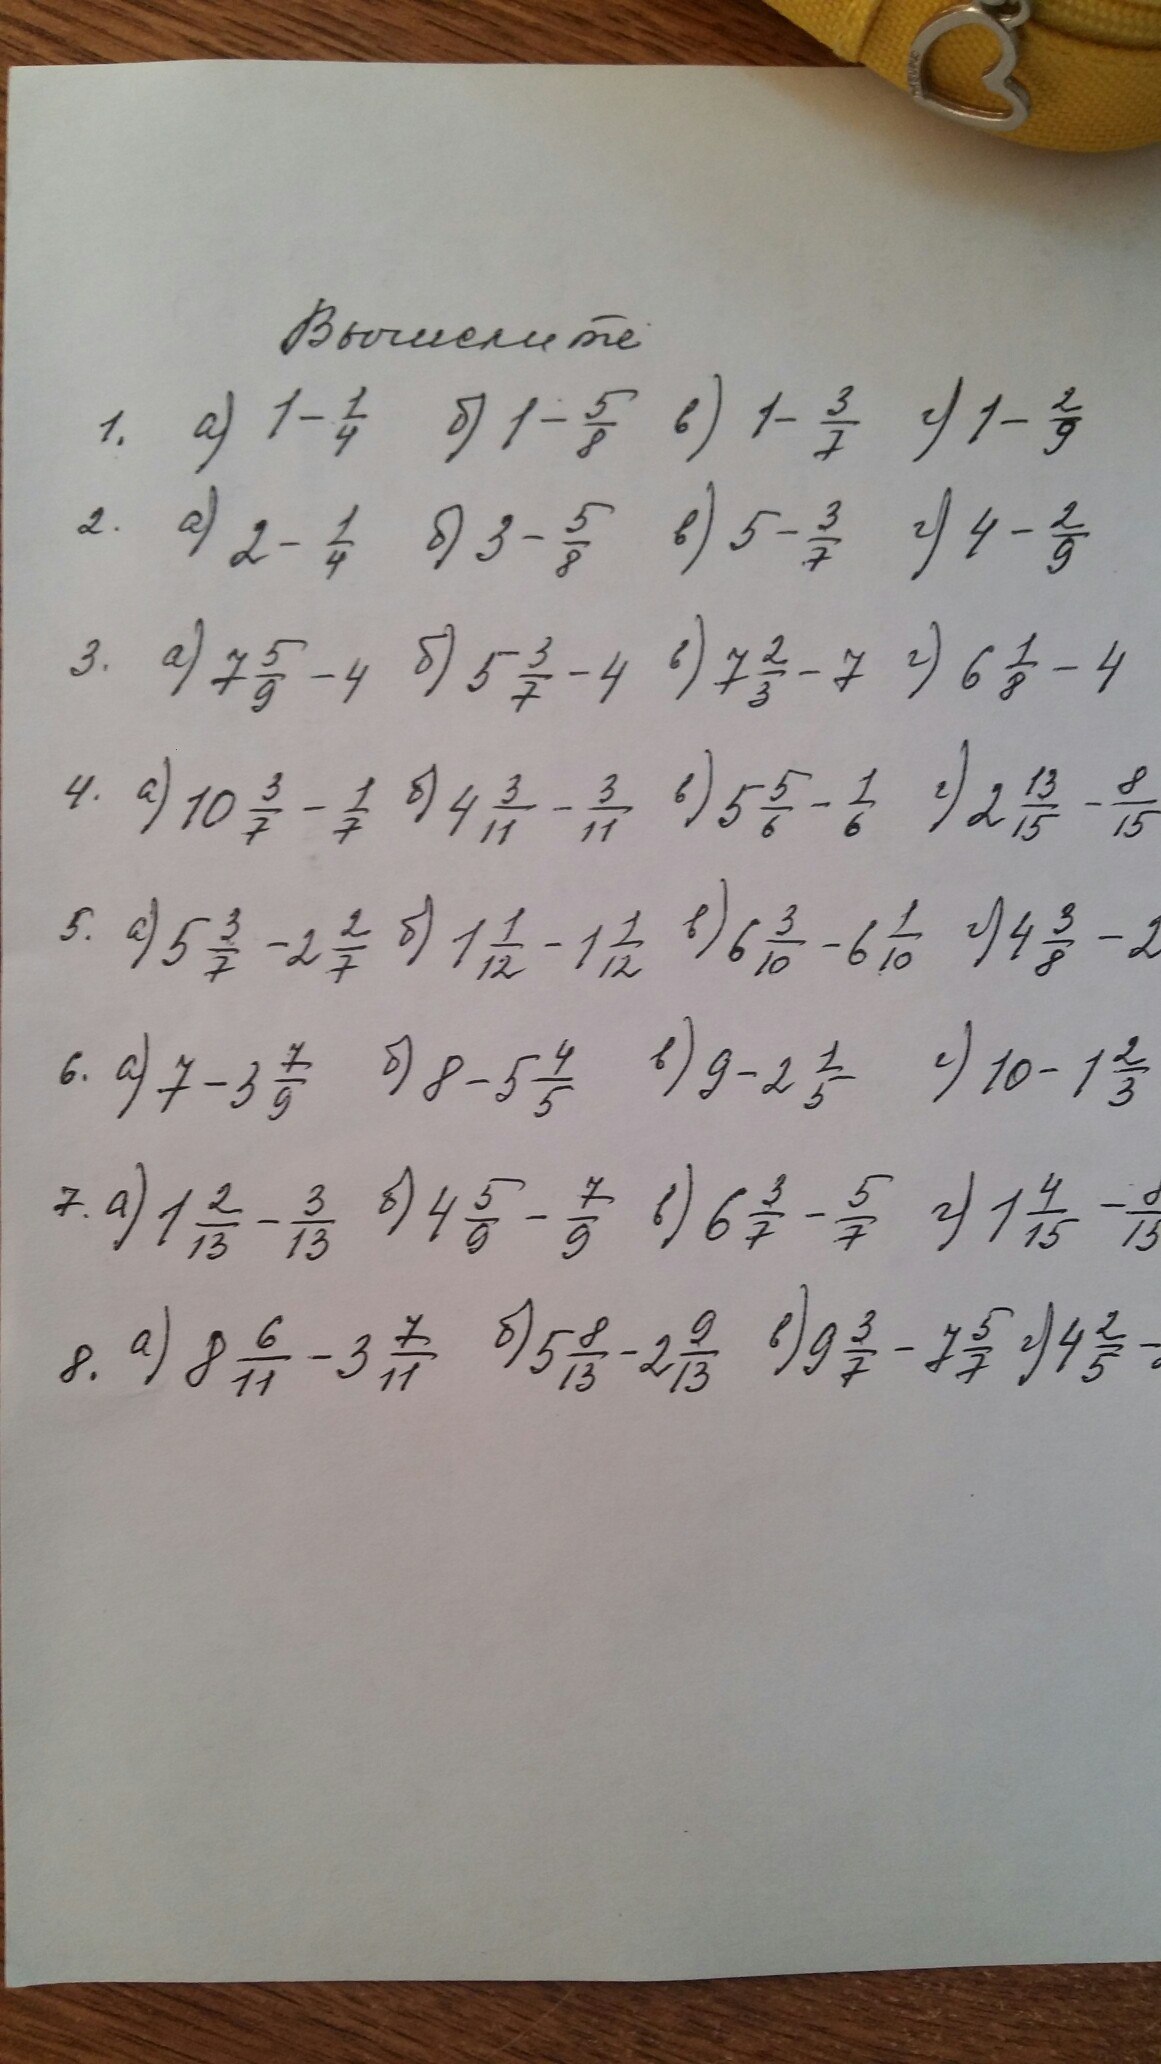 Вычислите
1. а) 1 - 1/4 б) 1 - 5/8 в) 1 - 3/7 г) 1 - 2/9
2. а) 2 - 1/4 б) 3 - 5/8 в) 5 - 3/7 г) 4 - 2/9
3. а) 7 5/9 - 4 б) 5 3/7 - 4 в) 7 2/3 - 7 г) 6 1/8 - 4
4. а) 10 3/7 - 1/7 б) 4 3/11 - 3/11 в) 5 5/6 - 1/6 г) 2 13/15 - 8/15
5. а) 5 3/7 - 2 2/7 б) 1 1/12 - 1 1/12 в) 6 3/10 - 6 1/10 г) 4 3/8 - 2
6. а) 7 - 3 7/9 б) 8 - 5 4/5 в) 9 - 2 1/5 г) 10 - 1 2/3
7. а) 1 2/13 - 3/13 б) 4 5/9 - 7/9 в) 6 3/7 - 5/7 г) 1 4/15 - 8/15
8. а) 8 6/11 - 3 7/11 б) 5 8/13 - 2 9/13 в) 9 3/7 - 7 5/7 г) 4 2/5 -